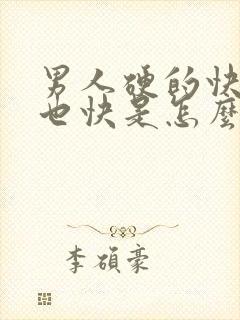 男人硬的快
也快是怎麼
李碩豪